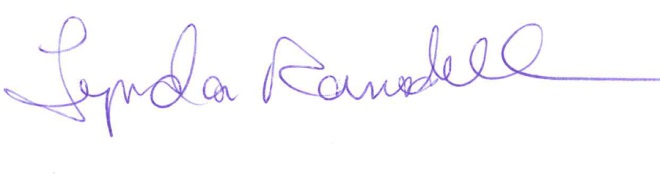 Lynda Ransdell